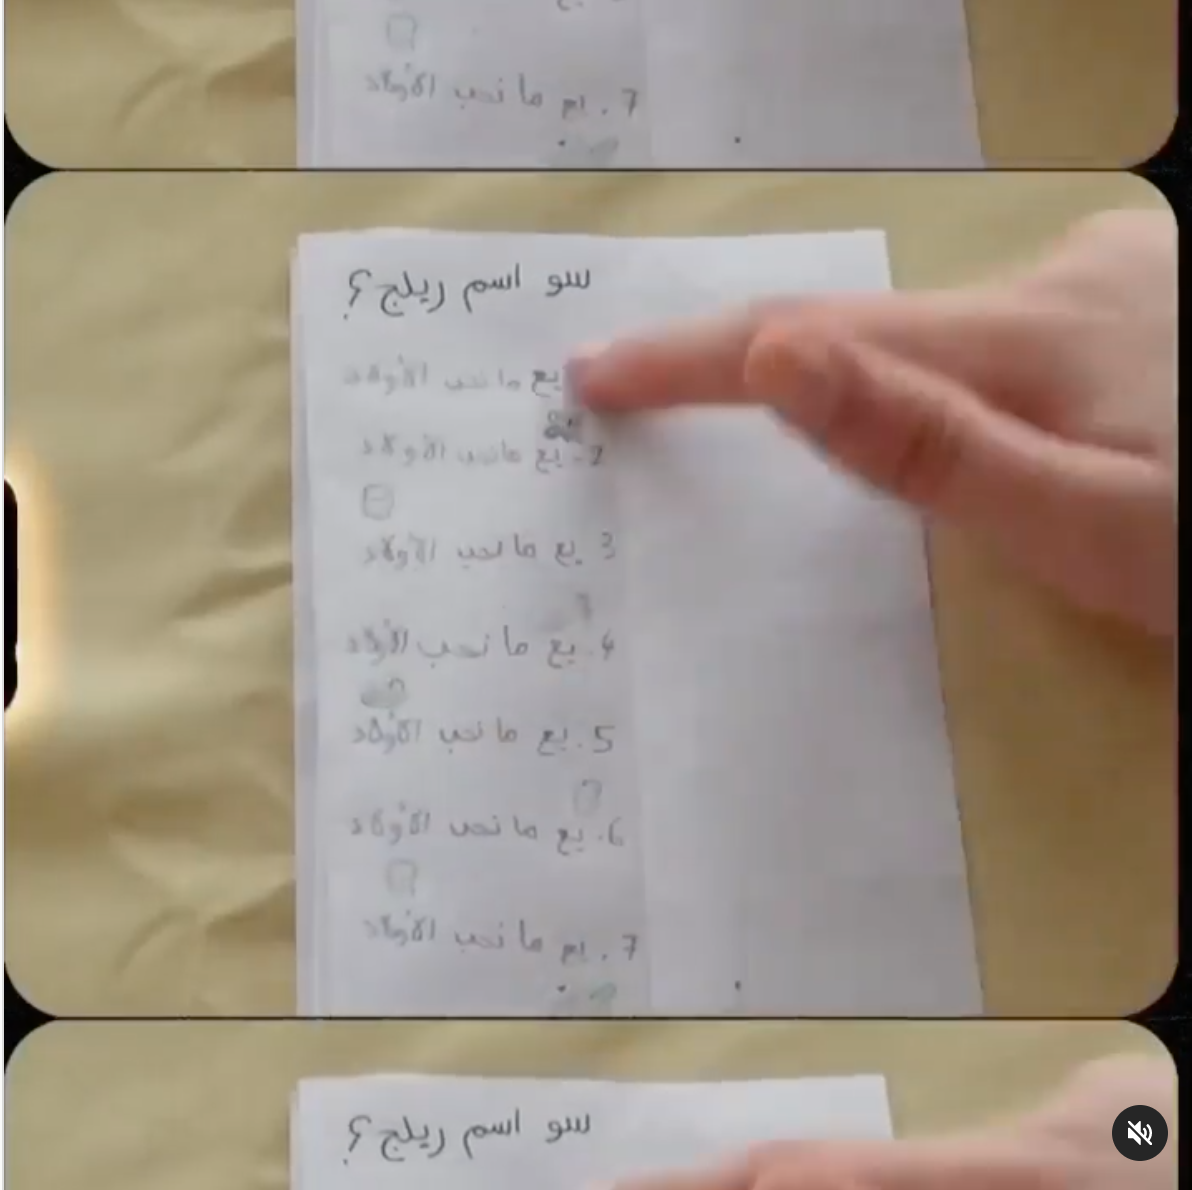 7. يع ما نحب الأولاد
سو اسم ريلج؟
يع ما نحب الأولاد
2. يع ما نحب الأولاد
3 يع ما نحب الأولاد
4. يع ما نحب الأولاد
5. يع ما نحب الأولاد
6. يع ما نحب الأولاد
7. يع ما نحب الأولاد
سو اسم ريلج؟